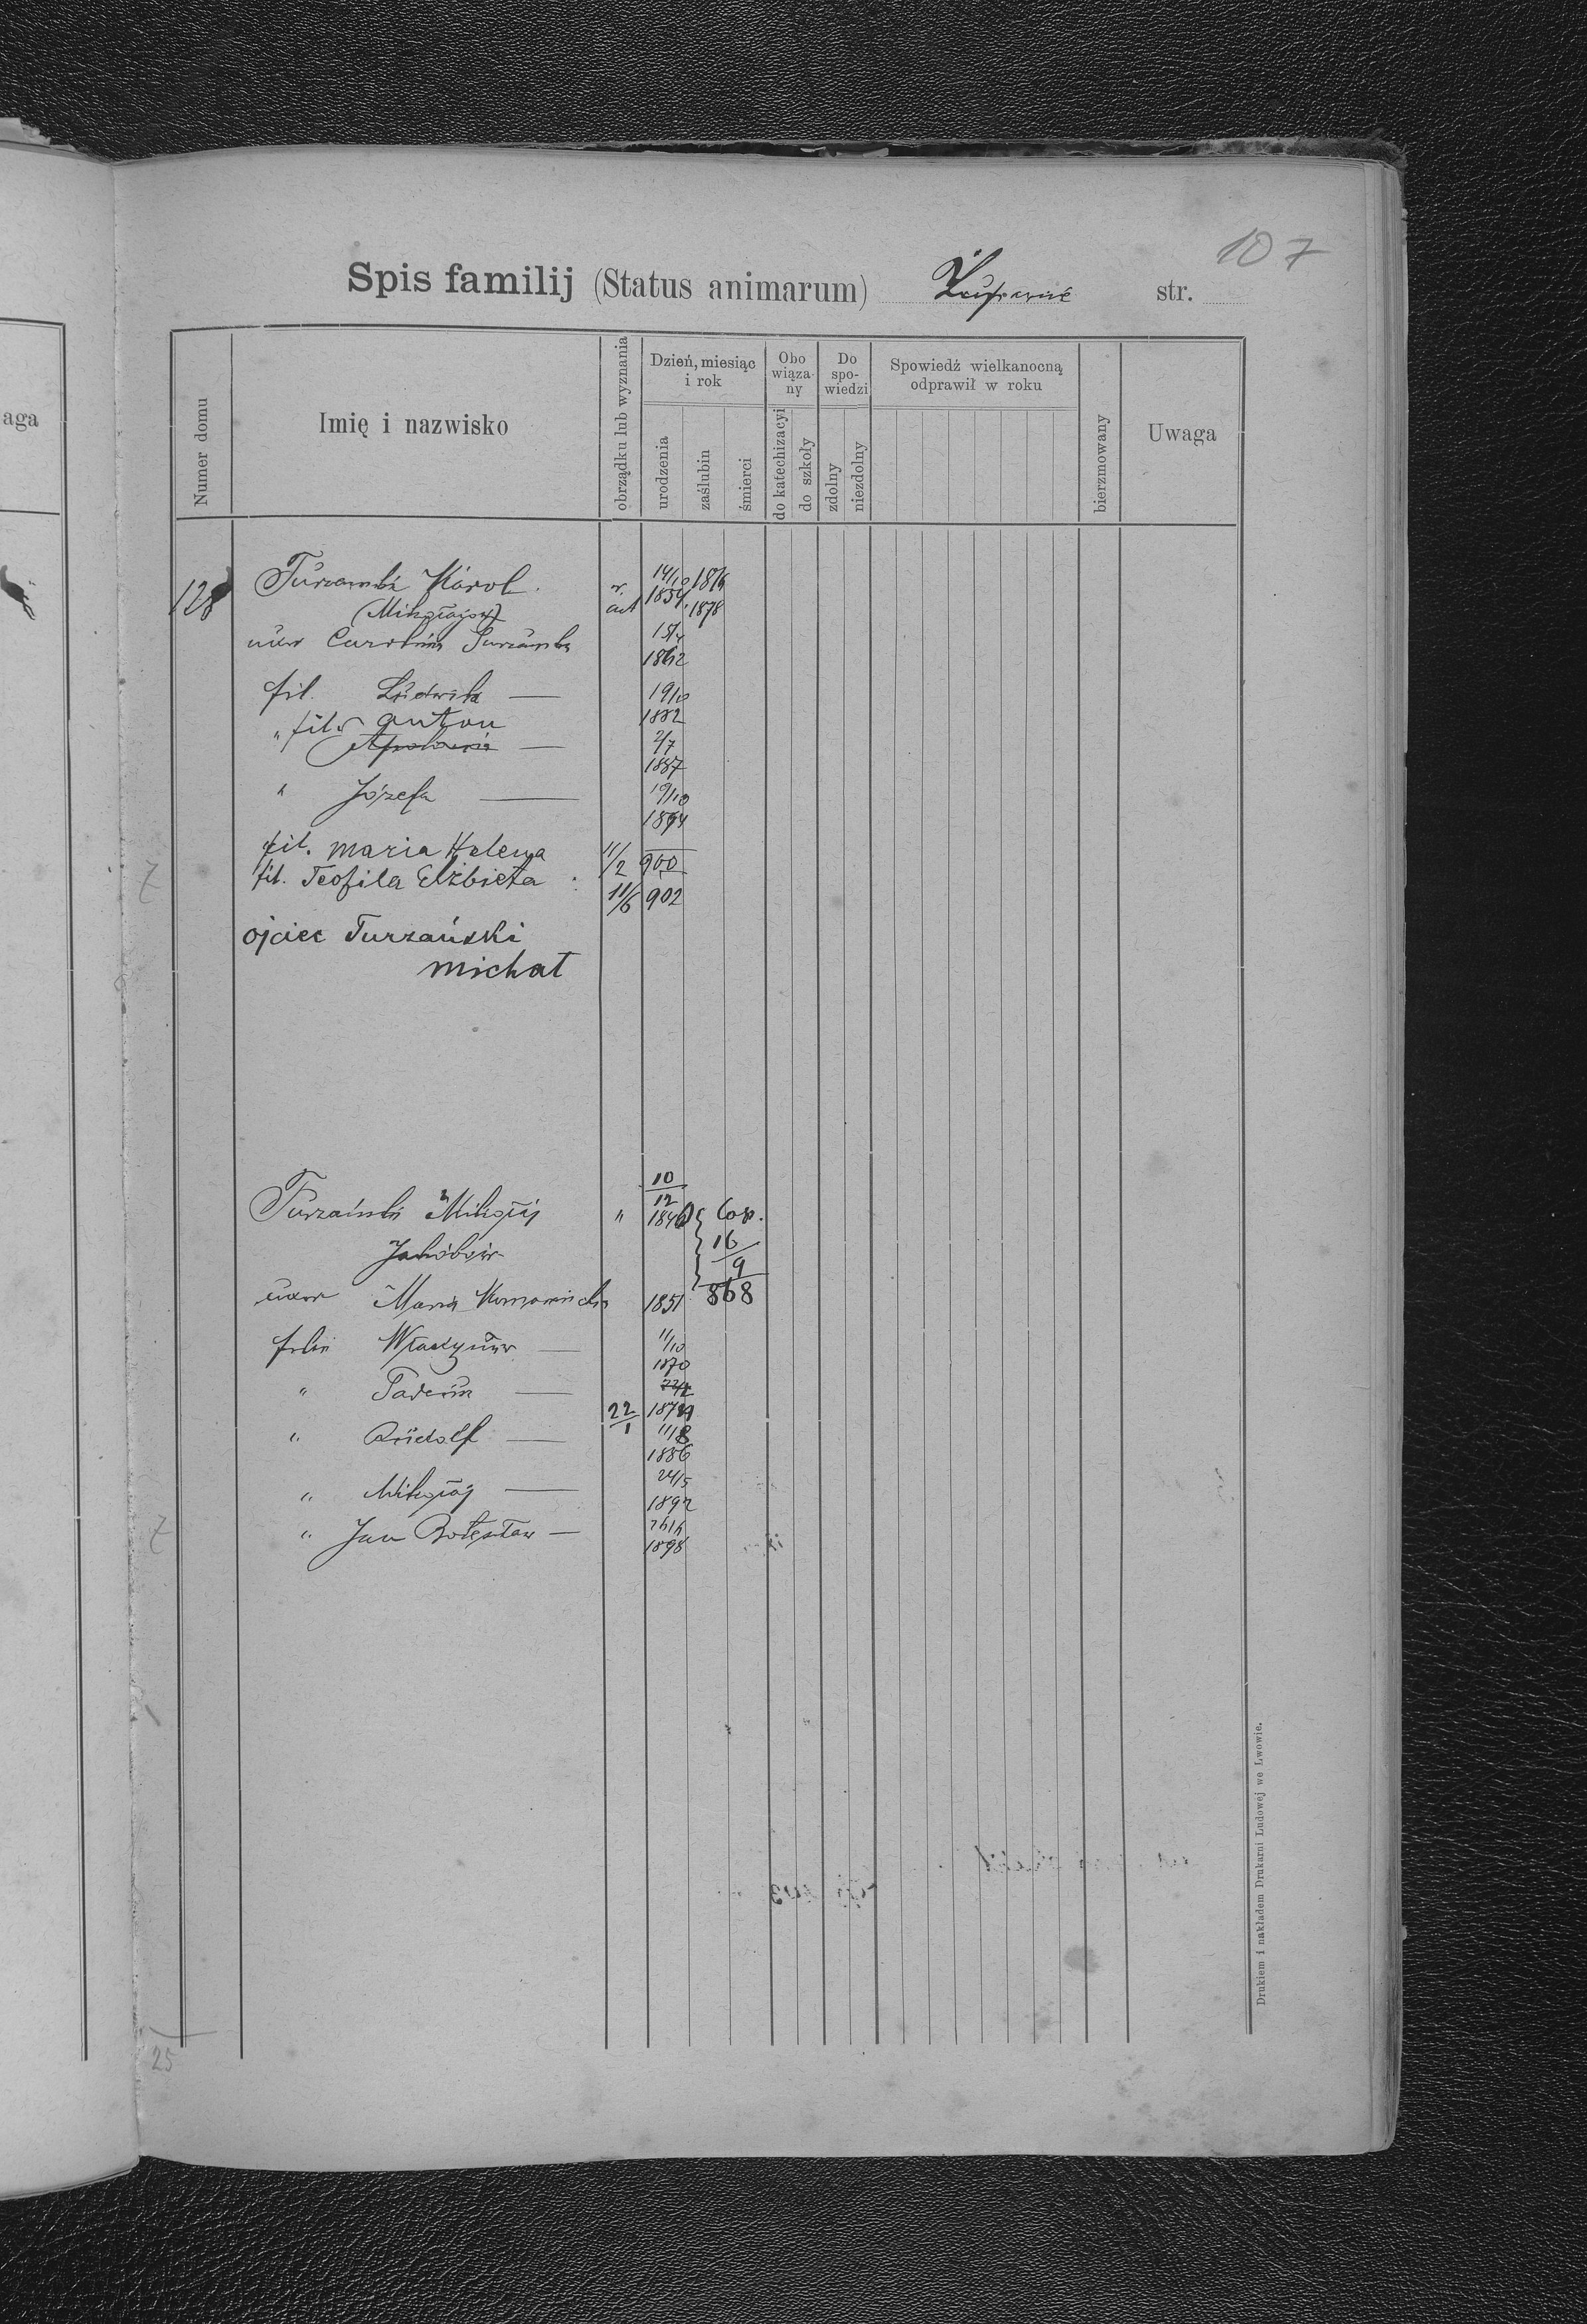 107
Spis familij (Status animarum) Żuprawie str.
aga
Numer domu
Imię i nazwisko
obrządku lub wyznania
Dzień, miesiąc i rok
urodzenia
zaślubin
śmierci
Obowiązany
do katechizacyi
do szkoły
Do spowiedzi
zdolny
niezdolny
Spowiedź wielkanocną odprawił w roku
bierzmowany
Uwaga
128 Turzański Karol 14/10 1854
(Mikołajów) 1878
uxor Carolina Turzańska 15/4 1862
fil. Ludwika — 19/10 1882
" filius Anton
Apolonia — 2/7 1887
" Józefa — 19/10 1894
fil. Maria Helena 11/2 900
fil. Teofila Elżbieta 11/6 902
ojciec Turzański
Michał
Turzański Mikołaj " 10/12 1846 Cop. 16/9 868
Jakóbów
uxor Maria 1851
filii Władysław — 11/10 1870
" Tadeusz — 22/1
" Rudolf — 11/8 1886
" Mikołaj — 24/5 1892
" Jan Bolesław — 1898
25
Drukiem i nakładem Drukarni Ludowej we Lwowie.